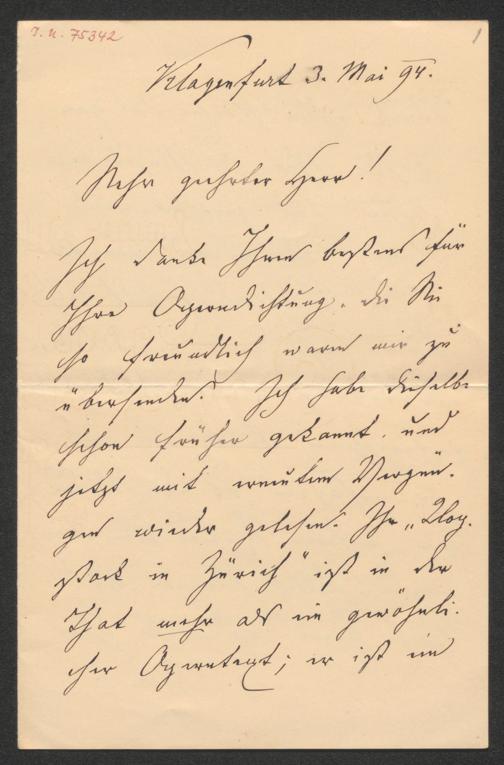 I. N. 75342
1
Klagenfurt 3. Mai 94.
Sehr geehrter Herr!
Ich danke Ihnen bestens für
Ihre Operndichtung, die Sie
so freundlich waren mir zu
übersenden. Ich habe dieselbe
schon früher gekannt, und
jetzt mit erneutem Vergnü-
gen wieder gelesen. Ihr „Klop-
stock in Zürich" ist in der
That mehr als ein gewöhnli-
cher Operntext; er ist ein